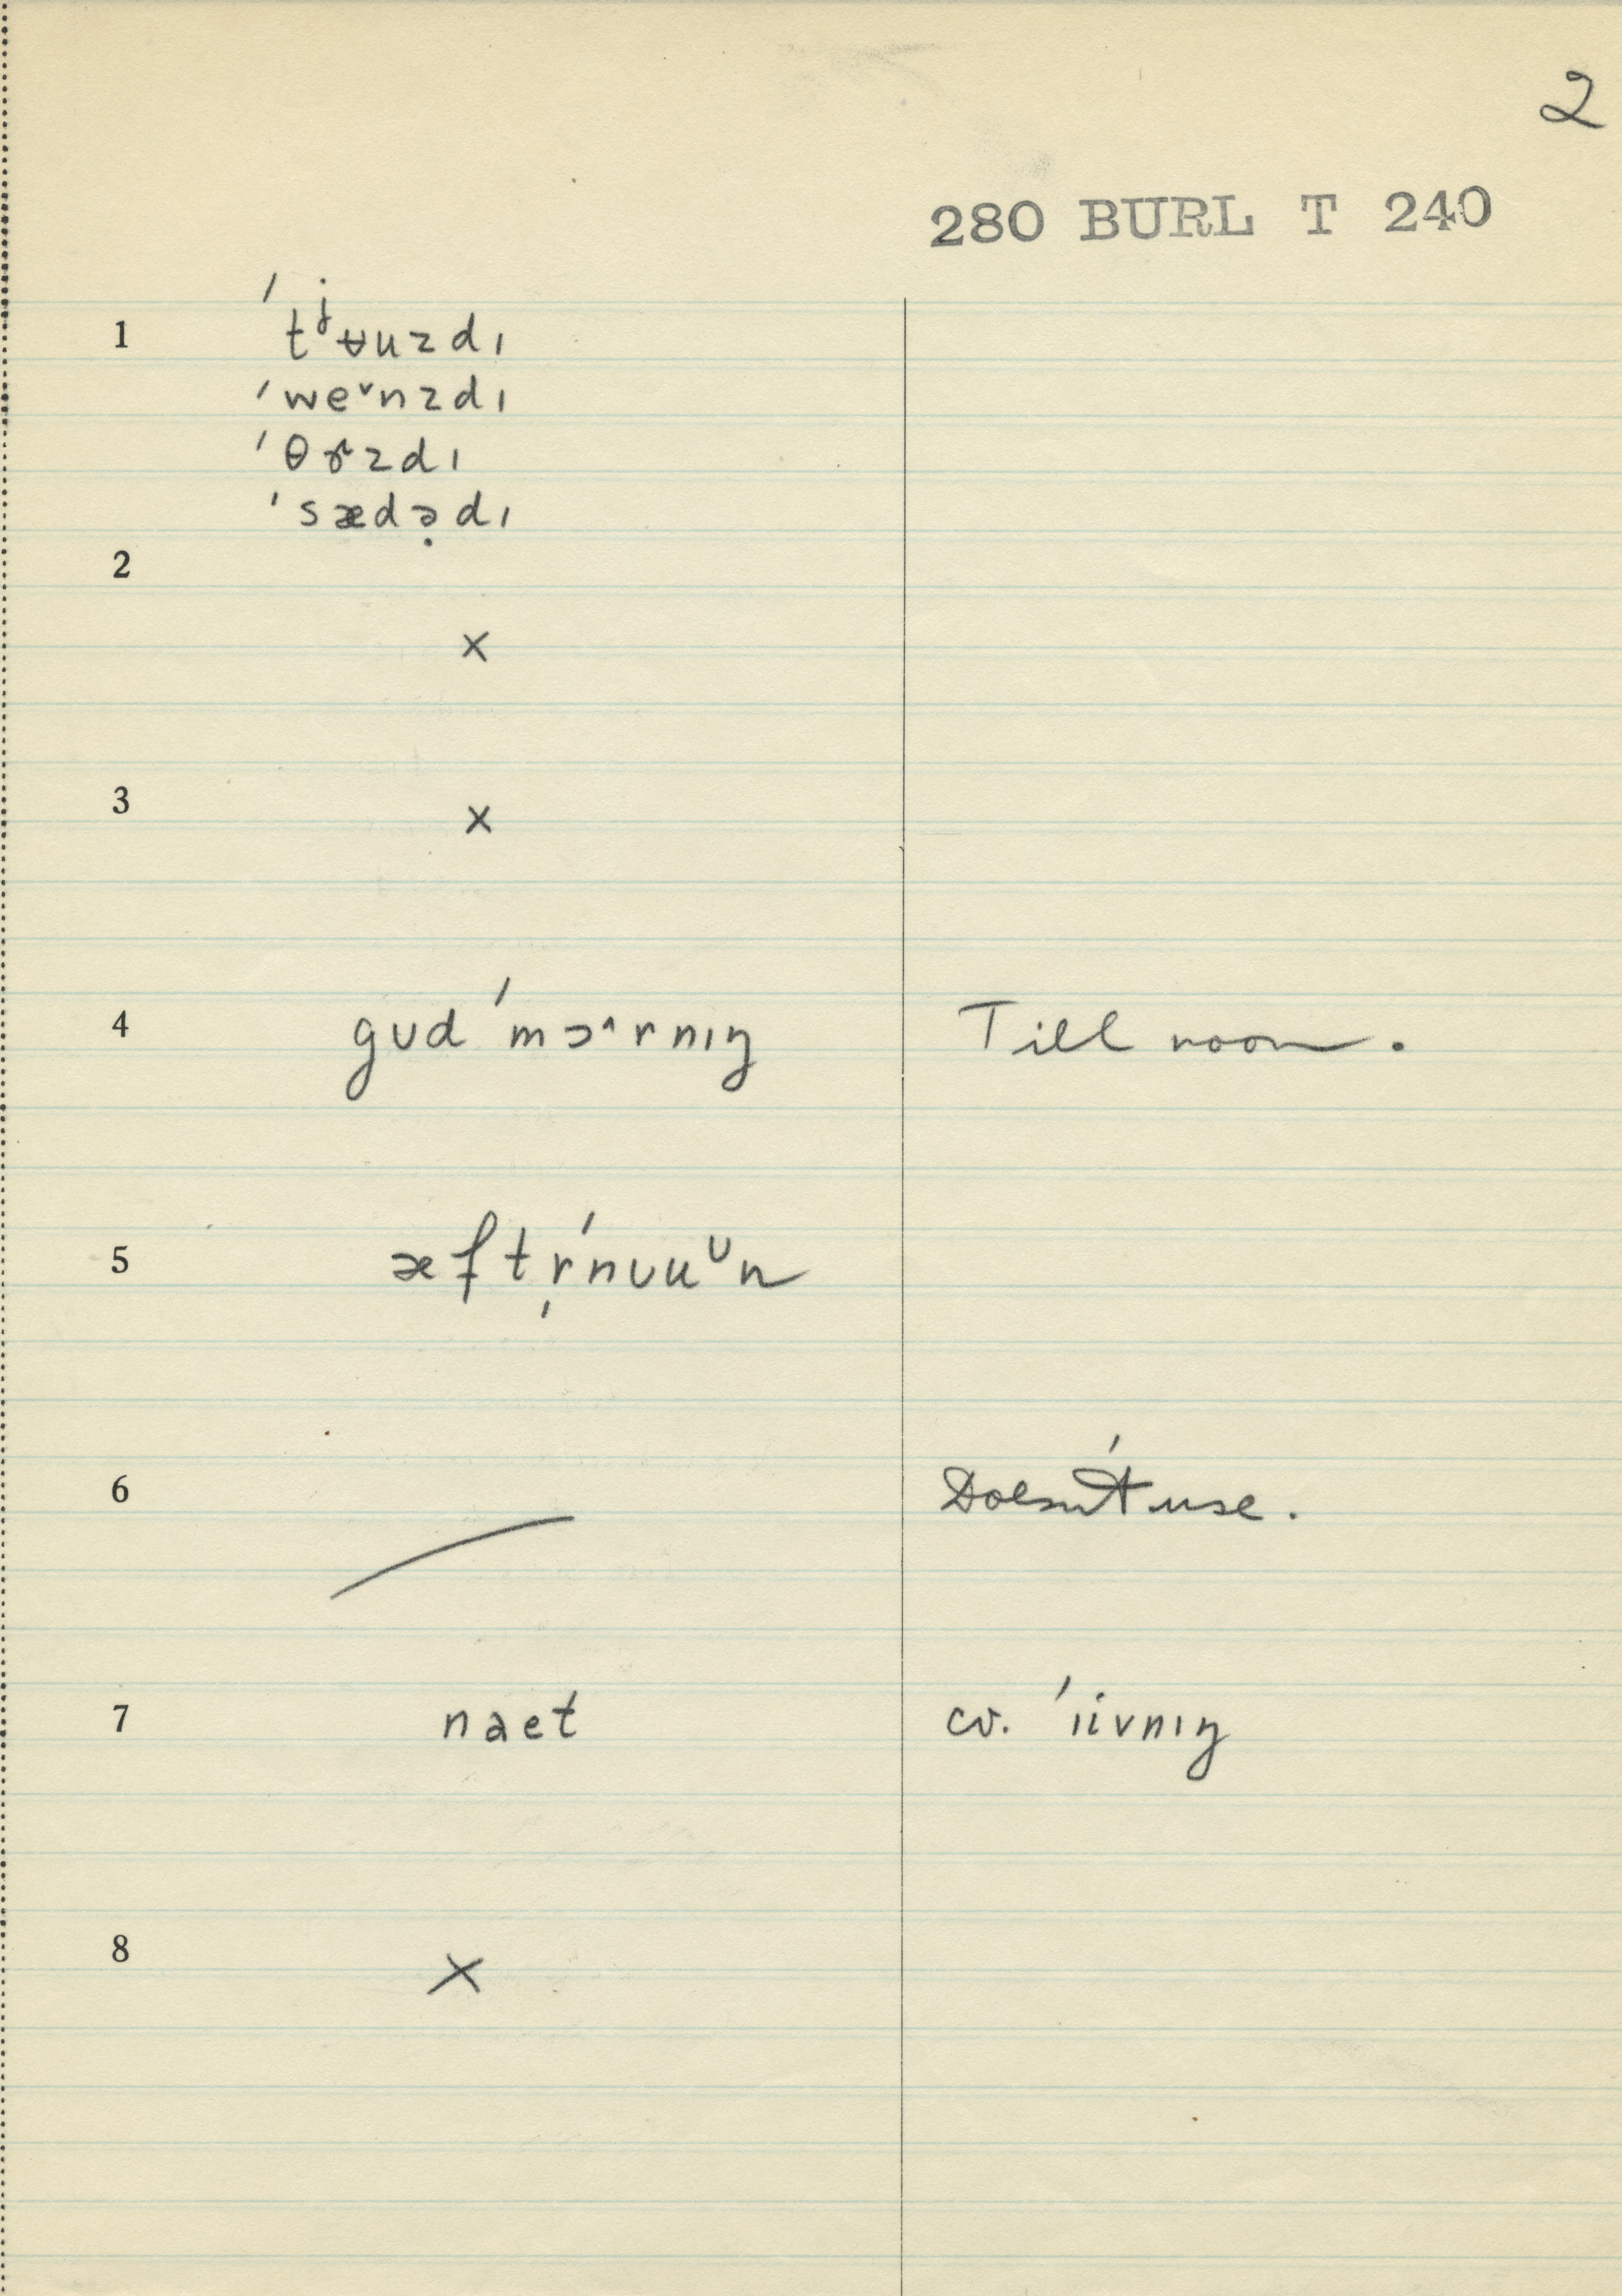 2
280 BURL T 240
1 ˈtʲʉuzdɪ
ˈweˇnzdɪ
ˈθɝzdɪ
ˈsædə̣dɪ
2
×
3 ×
4 gʊdˈmɔ^rnɪŋ Till noon.
5 æftr̩ˈnʊuᵁn
6 Doesn't use.
7 naet cv. ˈɪivnɪŋ
8 ×